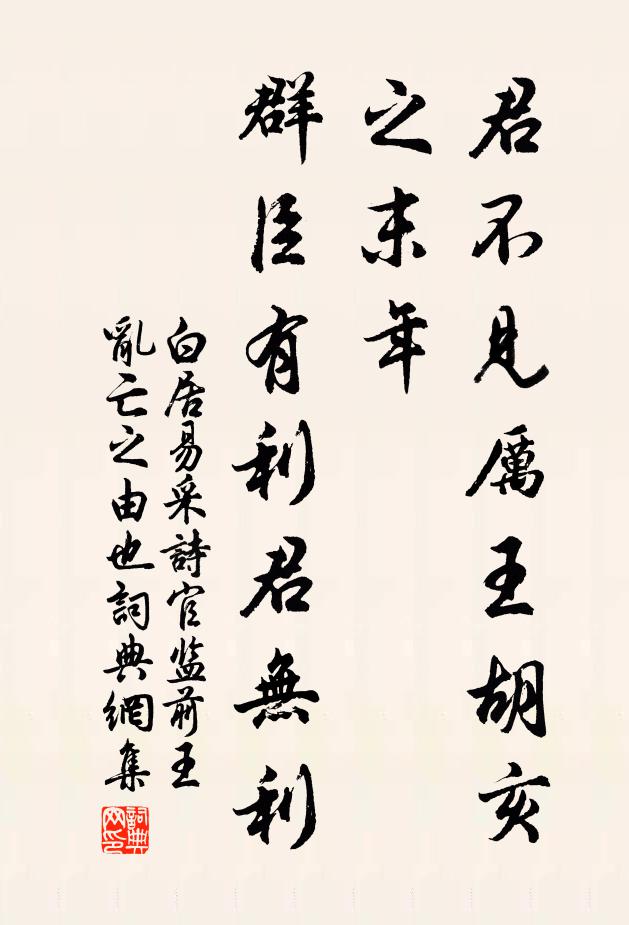 君不見厲王胡亥
之末年
群臣有利君無利
白居易采詩官监前王
亂亡之由也詞典網集
詞典
网印